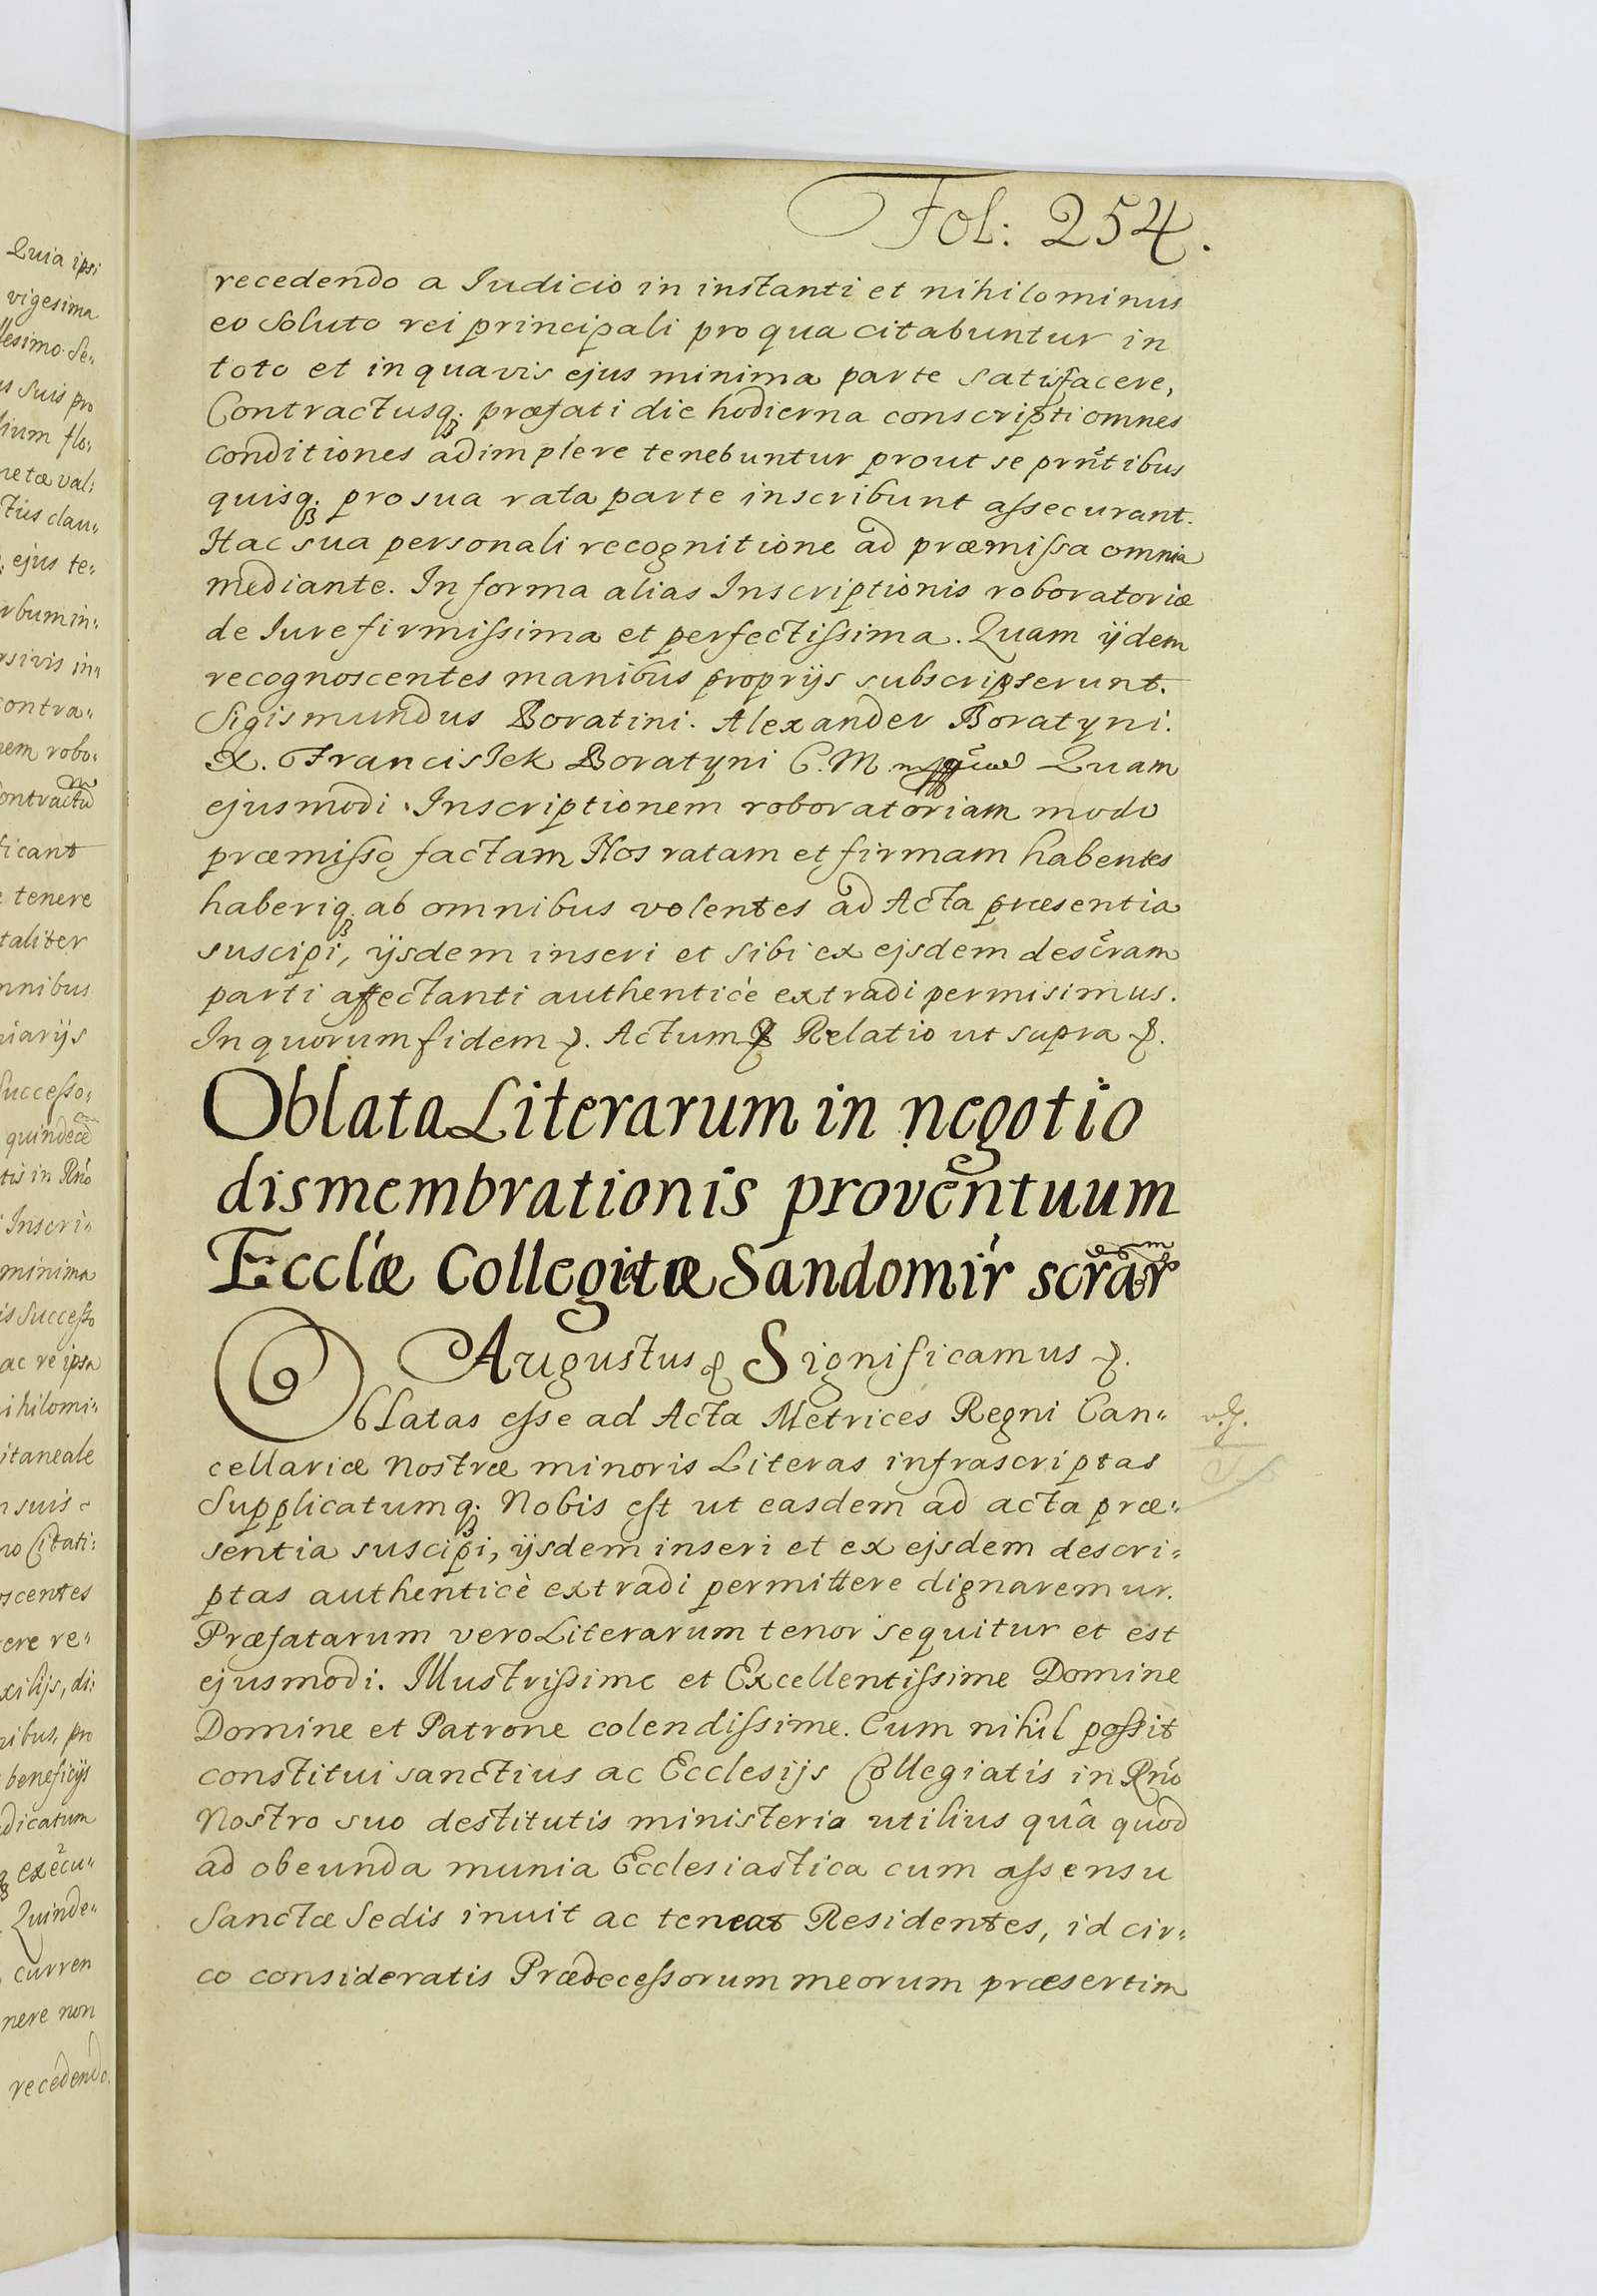 Fol: 254.
recedendo a Iudicio in instanti et nihilominus
eo soluto rei principali pro qua citabuntur in
toto et in quavis ejus minima parte satisfacere,
Contractusq; præfati die hodierna conscripti omnes
conditiones adimplere tenebuntur prout se prñtibus
quisq; pro sua rata parte inscribunt assecurant.
Hac sua personali recognitione ad præmissa omnia
mediante. In forma alias Inscriptionis roboratoriæ
de Iure firmissima et perfectissima. Quam ijdem
recognoscentes manibus proprijs subscripserunt.
Sigismundus Boratini. Alexander Boratyni.
X. Franciszek Boratyni C. M. Quam
ejusmodi Inscriptionem roboratoriam modo
præmisso factam Nos ratam et firmam habentes
haberiq; ab omnibus volentes ad Acta præsentia
suscipi, ijsdem inseri et sibi ex ejsdem descram
parti affectanti authenticè extradi permisimus.
In quorum fidem &. Actum & Relatio ut supra &.
Oblata Literarum in negotio
dismembrationis proventuum
Eccl'æ Collegiatæ Sandomir' scrar
Augustus & Significamus &.
Oblatas esse ad Acta Metrices Regni Can„
cellariæ Nostræ minoris Literas infrascriptas
Supplicatumq; Nobis est ut easdem ad acta præ„
sentia suscipi, ijsdem inseri et ex ejsdem descri„
ptas authenticè extradi permittere dignaremur.
Præfatarum vero Literarum tenor sequitur et est
ejusmodi. Illustrissime et Excellentissime Domine
Domine et Patrone colendissime. Cum nihil possit
constitui sanctius ac Ecclesijs Collegiatis in Rño
Nostro suo destitutis ministeria utilius quâ quod
ad obeunda munia Ecclesiastica cum assensu
Sanctæ Sedis inuit ac teneat Residentes, id cir„
co consideratis Prædecessorum meorum præsertim
Quia ipsi
vigesima
lesimo Se„
s suis pro
lium flo„
netæ val:
ctus clau„
ejus te„
rbum in„
rsivis in„
contra„
nem robo„
Contractu
ficant
tenere
taliter
mnibus
iarijs
Successo„
quindece
tis in Rño
Inscri„
minima
is Successo
ac re ipsa
ihilomi„
itaneale
n suis
no Citati:
oscentes
ere re„
xilijs, di:
nibus, pro
beneficijs
dicatum
execu„
Quinde„
curren
nere non
recedendo.